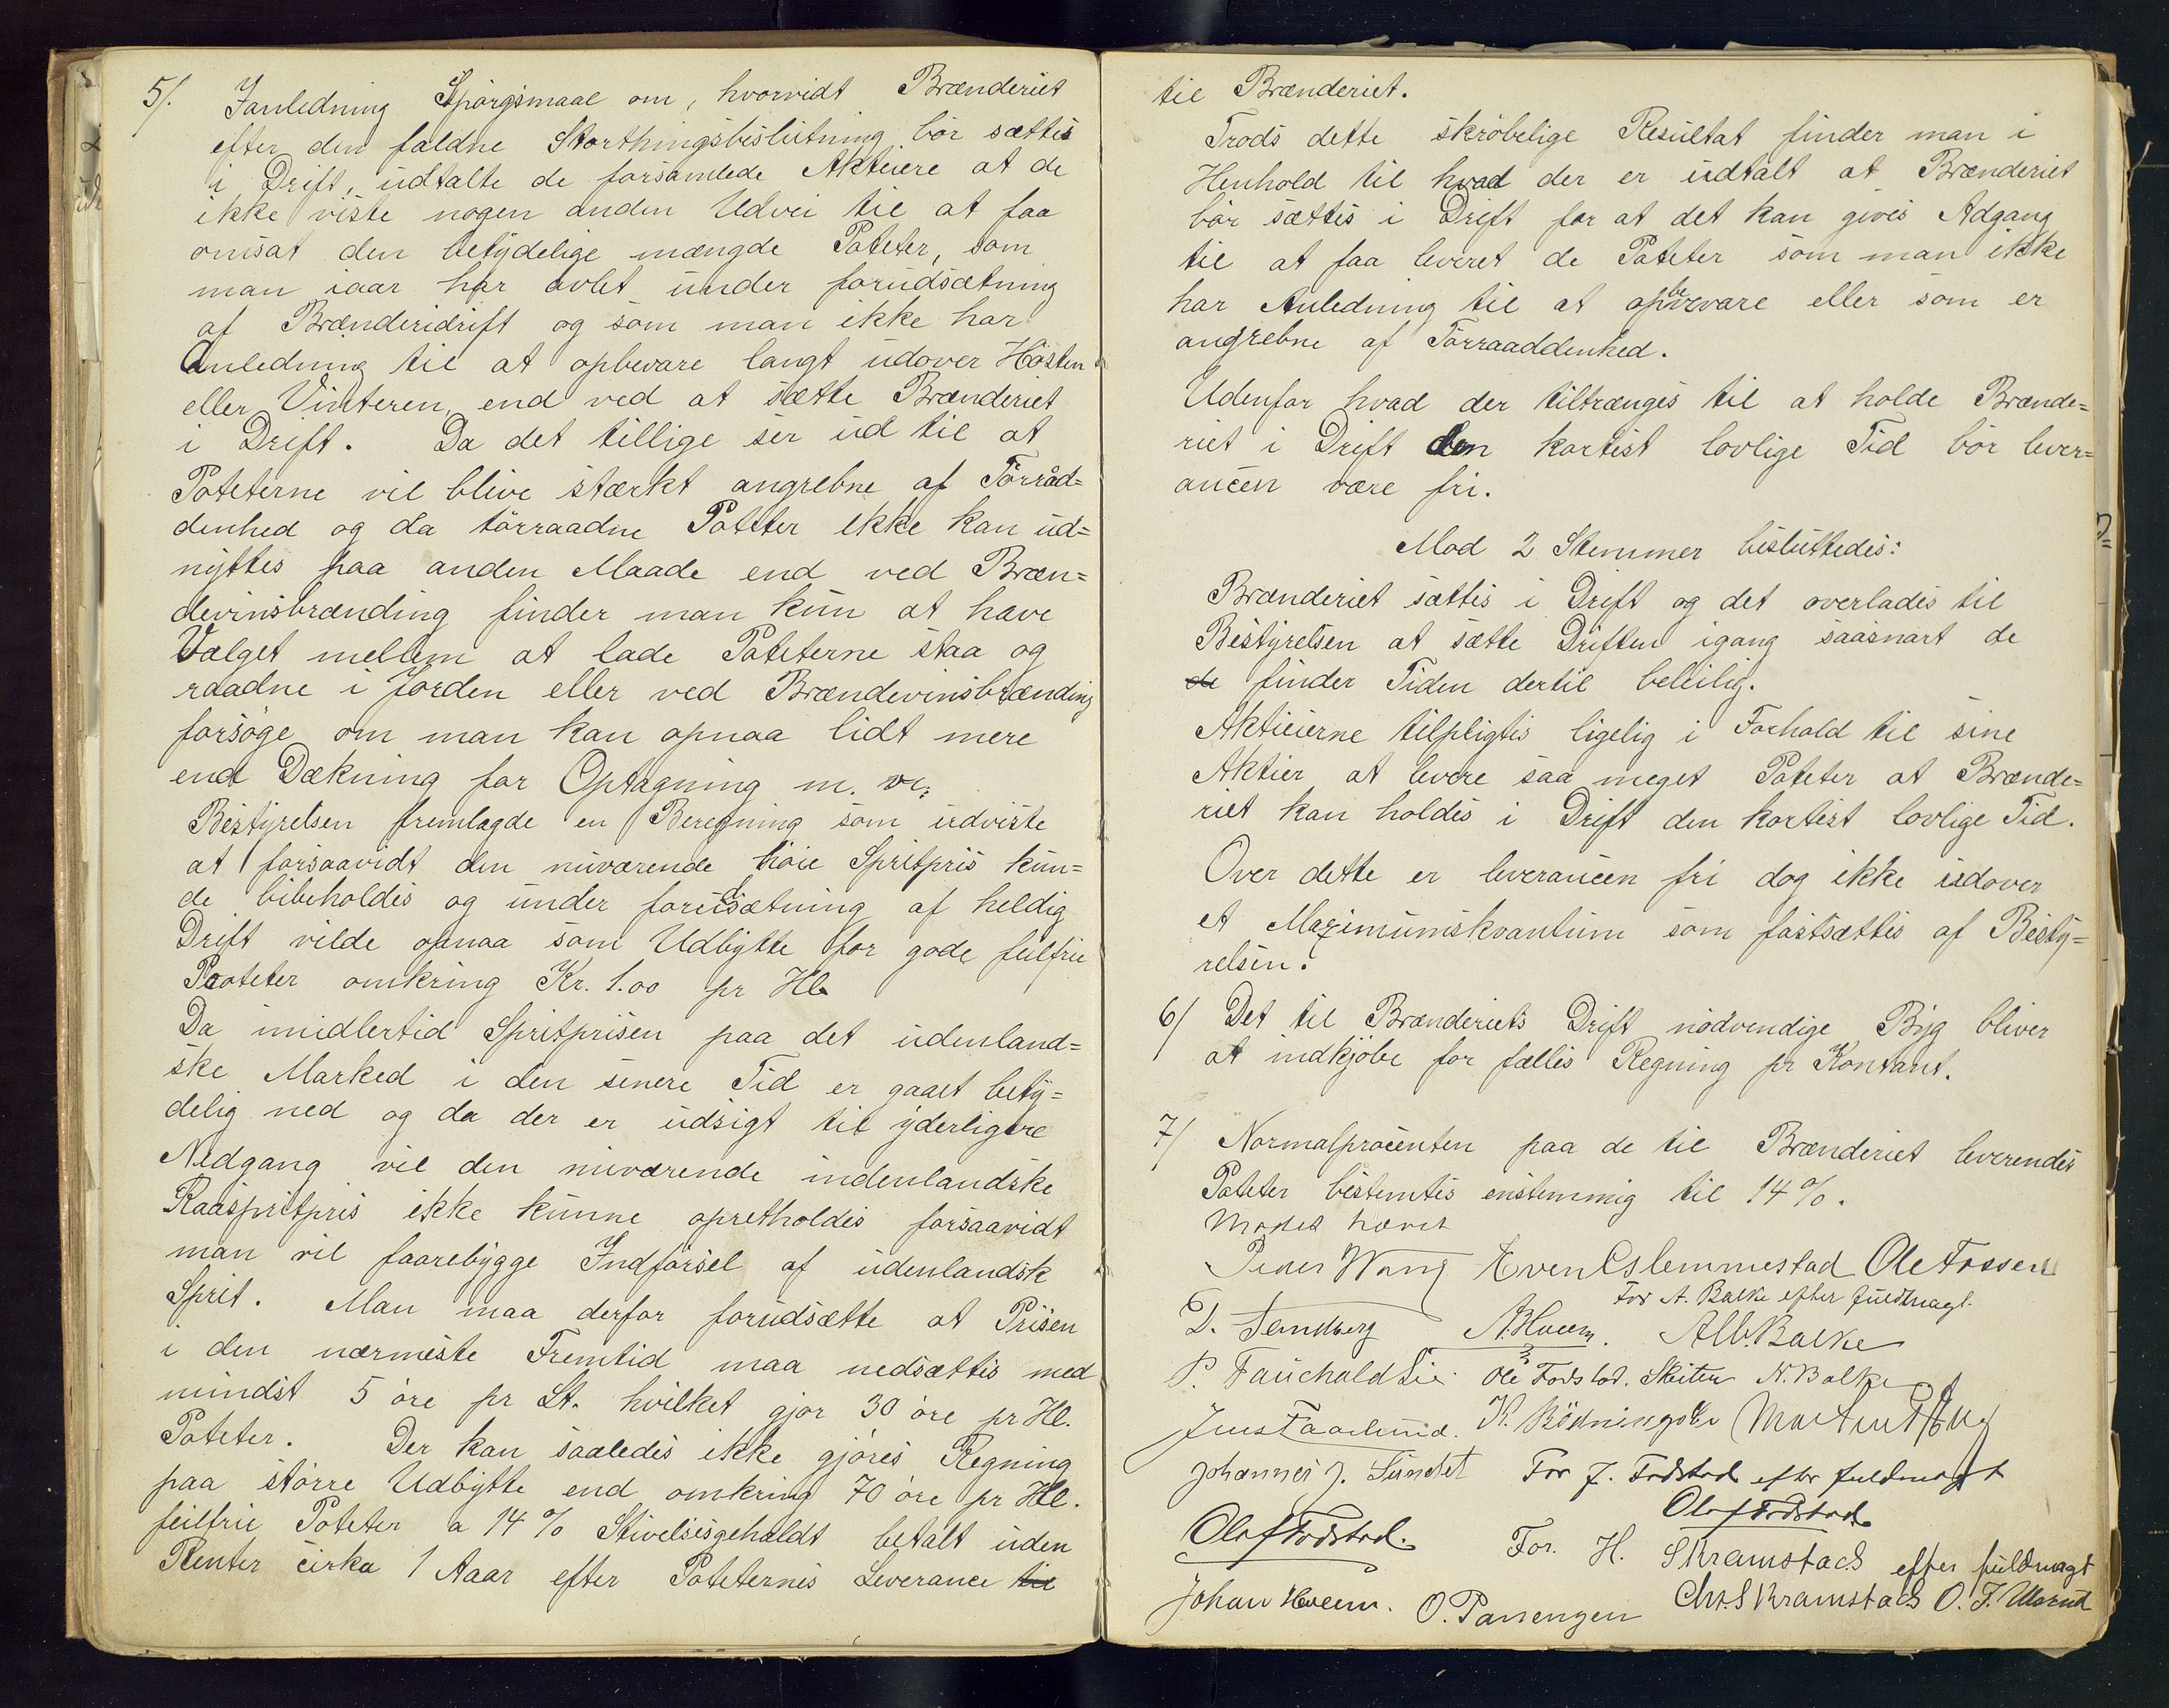 5/. Ianledning Spørgsmaal om, hvorvidt Brænderiet
efter den faldne Storthingsbeslutning bør sættes
i Drift, udtalte de forsamlede Aktieiere at de
ikke viste nogen anden Udvei til at faa
omsat den betydelige mængde Poteter, som
man iaar har avlet under forudsætning
af Brænderidrift og som man ikke har
Anledning til at opbevare langt udover Høsten
eller Vinteren, end ved at sætte Brænderiet
i Drift. Da det tillige ser ud til at
Poteterne vil blive stærkt angrebne af Tørråd=
denhed og da tørraadne Poteter ikke kan ud=
nyttes paa anden Maade end ved Bræn=
devinsbrænding finder man kun at have
Valget mellem at lade Poteterne staa og
raadne i Jorden eller ved Brændevinsbrænding
forsøge om man kan opnaa lidt mere
end Dækning for Optagning m. v.
Bestyrelsen fremlagde en Beregning som udviste
at forsaavidt den nuværende høie Spritpris kun=
de bibeholdes og under forudsætning af heldig
Drift vilde opnaa som Udbytte for gode feilfrie
Poteter omkring Kr. 1.00 pr Hl.
Da imidlertid Spritprisen paa det udenland=
ske Marked i den senere Tid er gaaet bety=
delig ned og da der er udsigt til yderligere
Nedgang vil den nuværende indenlandske
Raaspritpris ikke kunne opretholdes forsaavidt
man vil faarebygge Indførsel af udenlandsk
Sprit. Man maa derfor forudsætte at Prisen
i den nærmeste Fremtid maa nedsættes med
mindst 5 øre pr Lt. hvilket gjør 30 øre pr Hl.
Poteter. Der kan saaledes ikke gjøres Regning
paa større Udbytte end omkring 70 øre pr Hl.
feilfrie Poteter a 14 % Stivelsesgehaldt betalt uden
Renter cirka 1 Aaar efter Poteternes Leverance til
til Brænderiet.
Trods dette skrøbelige Resultat finder man i
Henhold til hvad der er udtalt at Brænderiet
bør sættes i Drift for at det kan gives Adgang
til at faa leveret de Poteter som man ikke
har Anledning til at opbevare eller som er
angrebne af Tørraaddenhed.
Udenfor hvad der tiltrænges til at holde Brænde=
riet i Drift den kortest lovlige Tid bør lever=
ancen være fri.
Mod 2 Stemmer besluttedes:
Brænderiet sættes i Drift og det overlades til
Bestyrelsen at sætte Driften igang saasnart de
de finder Tiden dertil beleilig.
Aktieierne tilpligtes ligelig i Forhold til sine
Aktier at levere saa meget Poteter at Brænde=
riet kan holdes i Drift den kortest lovlige Tid.
Over dette er leverancen fri dog ikke udover
et Maximumskvantum som fastsættes af Besty=
relsen.
6/ Det til Brænderiets Drift nødvendige Byg bliver
at indkjøbe for fælles Regning pr Kontant.
7/ Normalprocenten paa de til Brænderiet leverendes
Poteter bestemtes enstemmig til 14 %.
Mødet hævet
Peder Wang Even Eslemmestad Ole Fossen
For A. Balke efter fuldmagt.
A. Hveem. Alb. Balke
P. Fauchald Lie Ole Fodstad. Skiten N. Balke
Johannes J. Sundet For J. Fodstad efter fuldmagt
Olaf Fodstad
Olaf Fodstad. For. H. Skramstad efter fuldmagt
Johan Hveem. O. Parrengen Chr. Skramstad O. J. Ullsrud